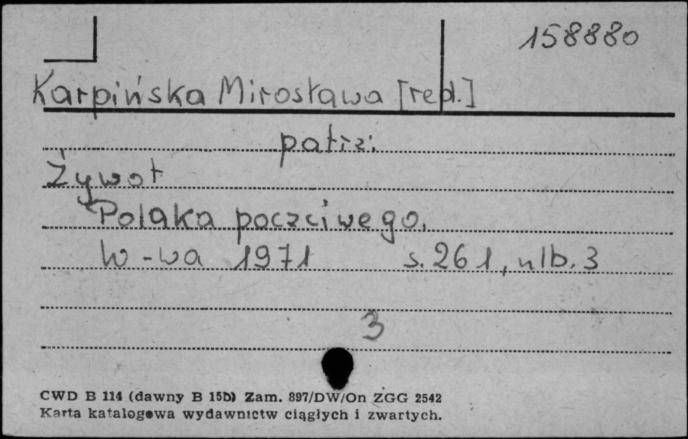 158880
Karpińska Mirosława [red.]
patrz:
Żywot
Polaka poczciwego.
W-wa 1971 s. 261, nlb. 3
3
CWD B 114 (dawny B 15b) Zam. 897/DW/On ZGG 2542
Karta katalogowa wydawnictw ciągłych i zwartych.